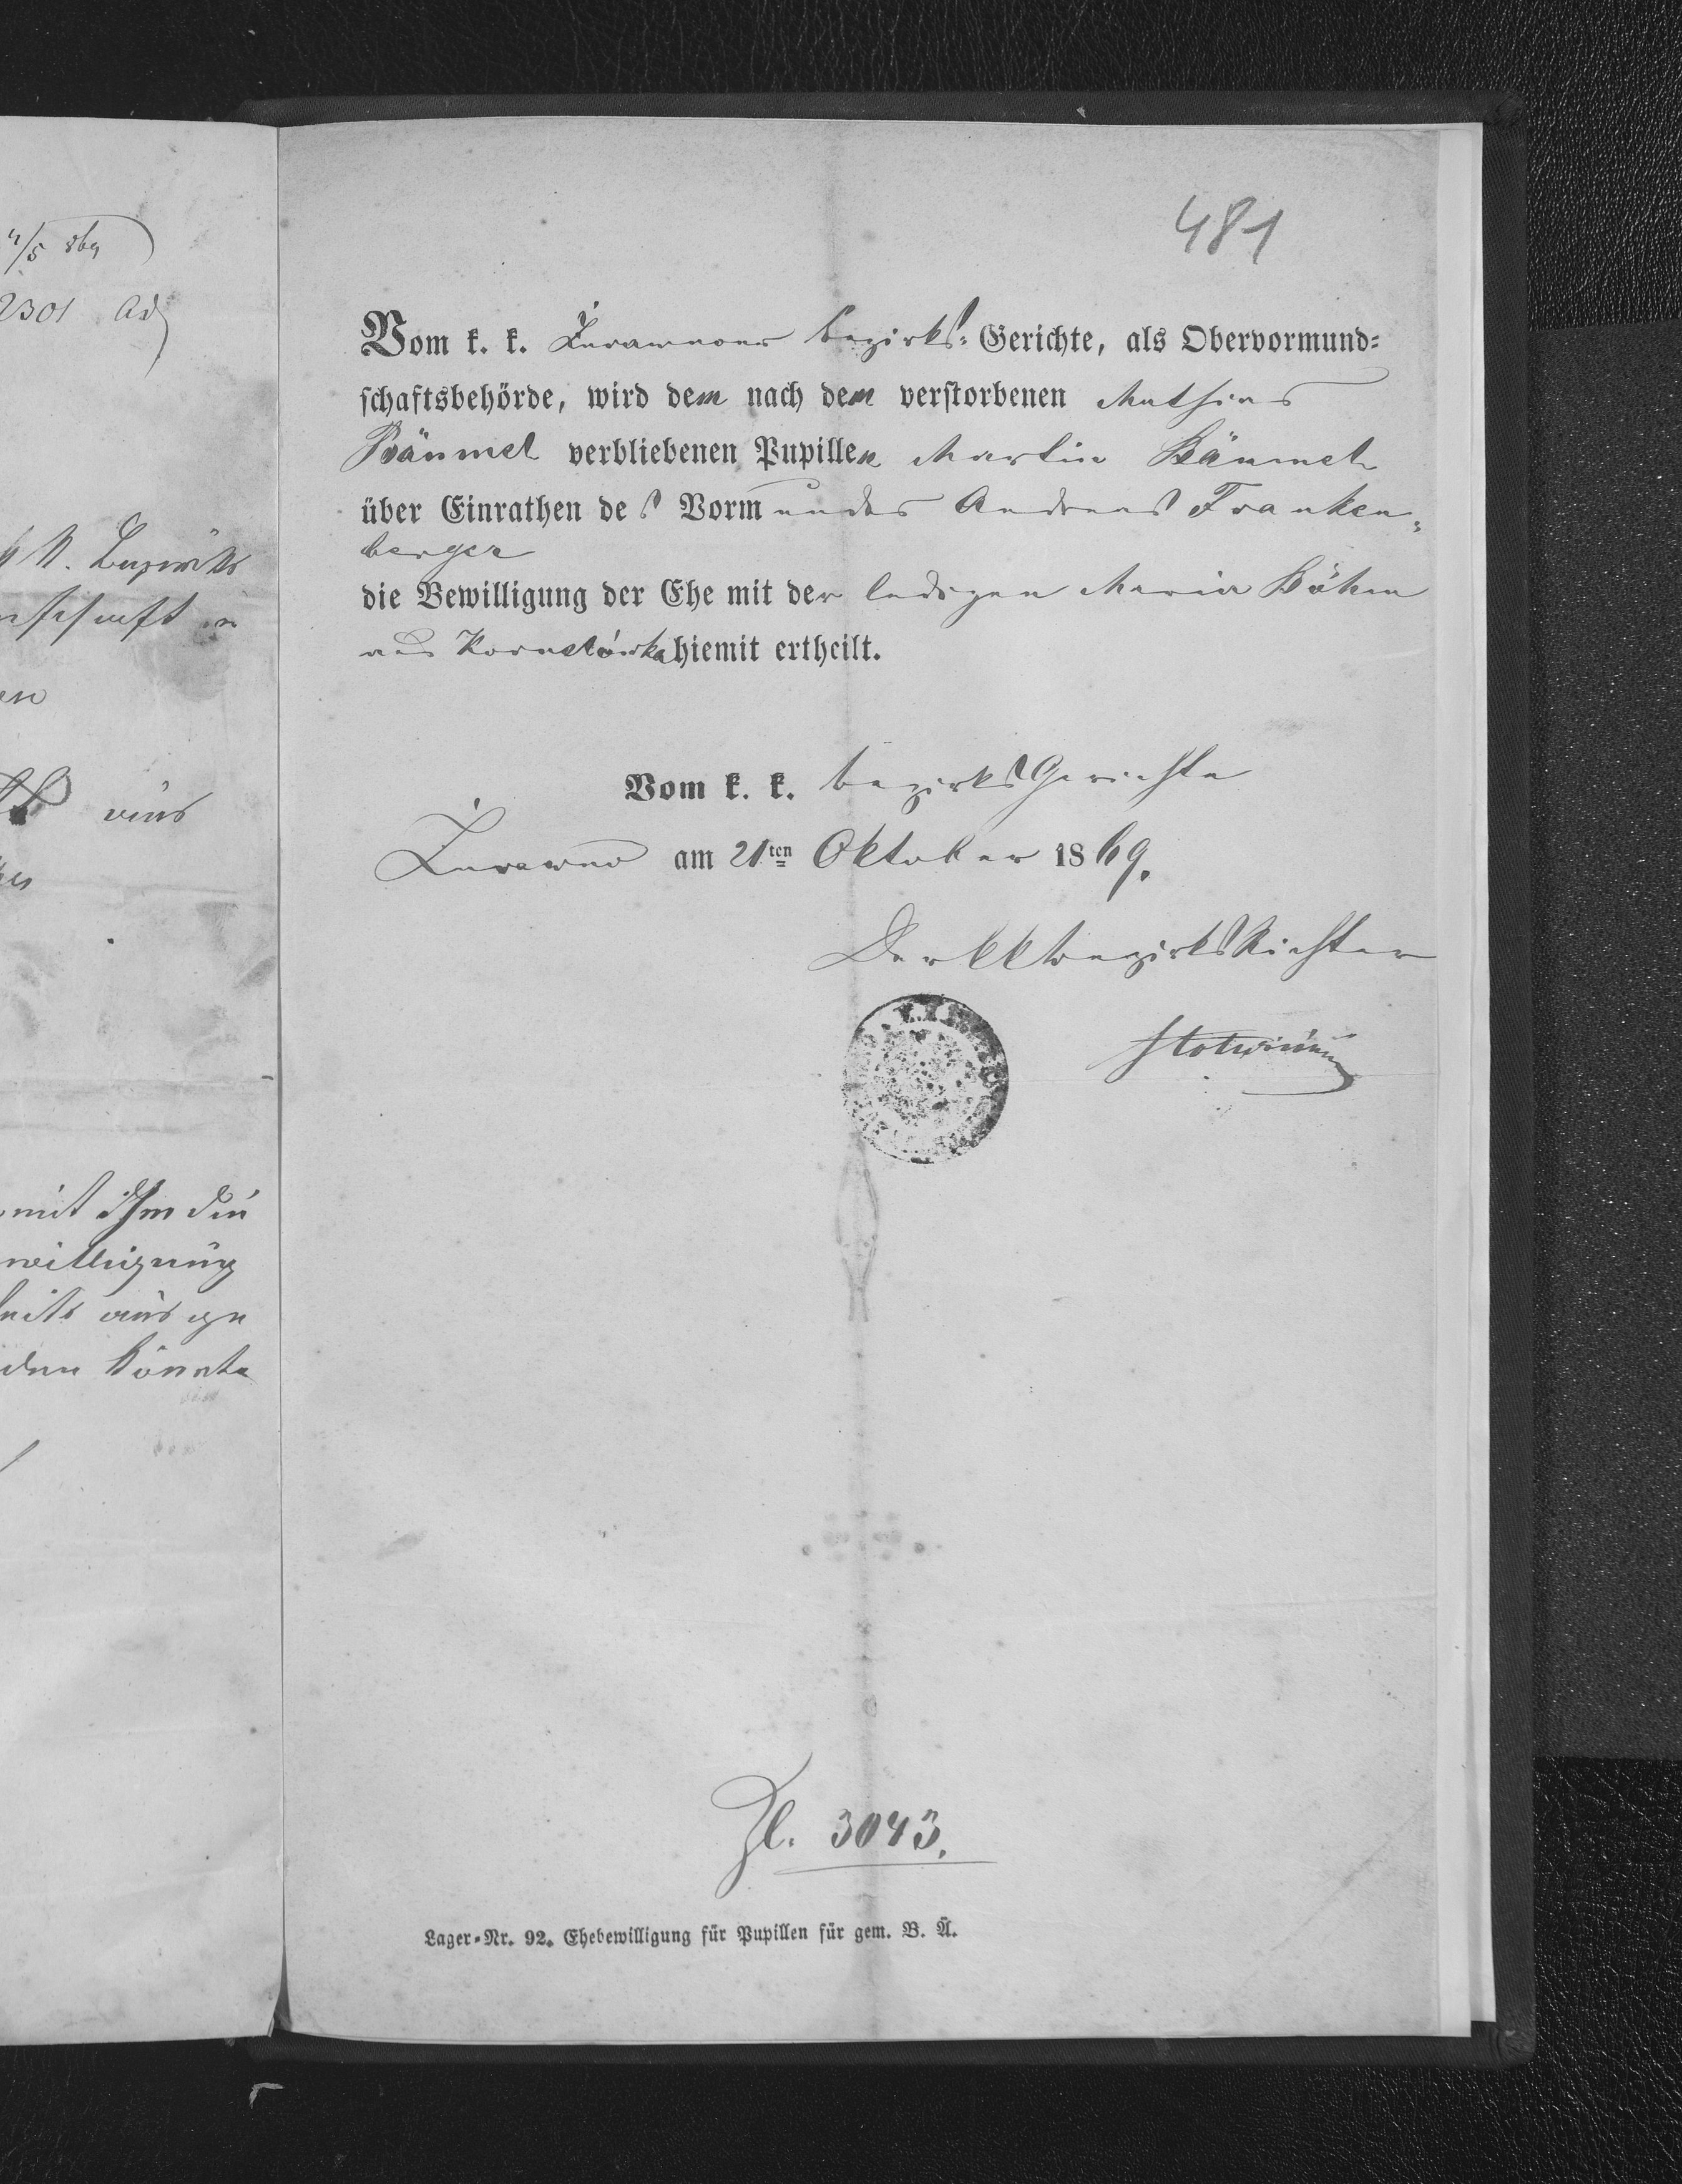 4/5 869
2301 Ad
481
Vom k. k. Żurawnoer Bezirks-Gerichte, als Obervormund-
schaftsbehörde, wird dem nach dem verstorbenen Mathias
Bäumel verbliebenen Pupillen Martin Bäumel
über Einrathen des Vormundes Andreas Franken-
berger
die Bewilligung der Ehe mit der ledigen Maria Böhm
aus hiemit ertheilt.
Vom k. k. Bezirks Gerichte
Żurawno am 21ten Oktober 1869.
Der kk Bezirks Richter
mit ihm die
willigung
den könnte
Zl. 3043.
Lager-Nr. 92. Ehebewilligung für Pupillen für gem. B. Ä.